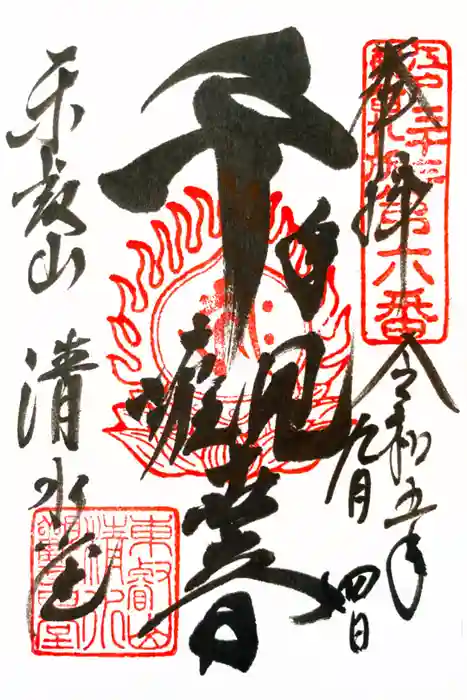 奉拝
令和五年
九月
四日
千手観世音
東叡山 清水堂
江戸三十三
観音札所
第六番
東叡山
清水
観音堂